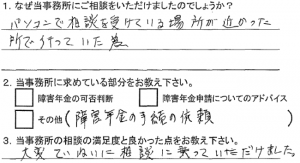 1. なぜ当事務所にご相談をいただけましたのでしょうか?
パソコンで相談を受けている場所が近かった
所で行っていた為
2. 当事務所に求めている部分をお教え下さい。
□ 障害年金の可否判断 □ 障害年金申請についてのアドバイス
□ その他(障害年金の手続の依頼)
3. 当事務所の相談の満足度と良かった点をお教え下さい。
大変ていねいに相談に乗っていただけました。